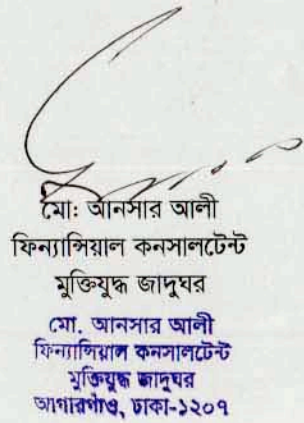 মো: আনসার আলী
ফিন্যান্সিয়াল কনসালটেন্ট
মুক্তিযুদ্ধ জাদুঘর
মো. আনসার আলী
ফিন্যান্সিয়াল কনসালটেন্ট
মুক্তিযুদ্ধ জাদুঘর
আগারগাঁও, ঢাকা-১২০৭